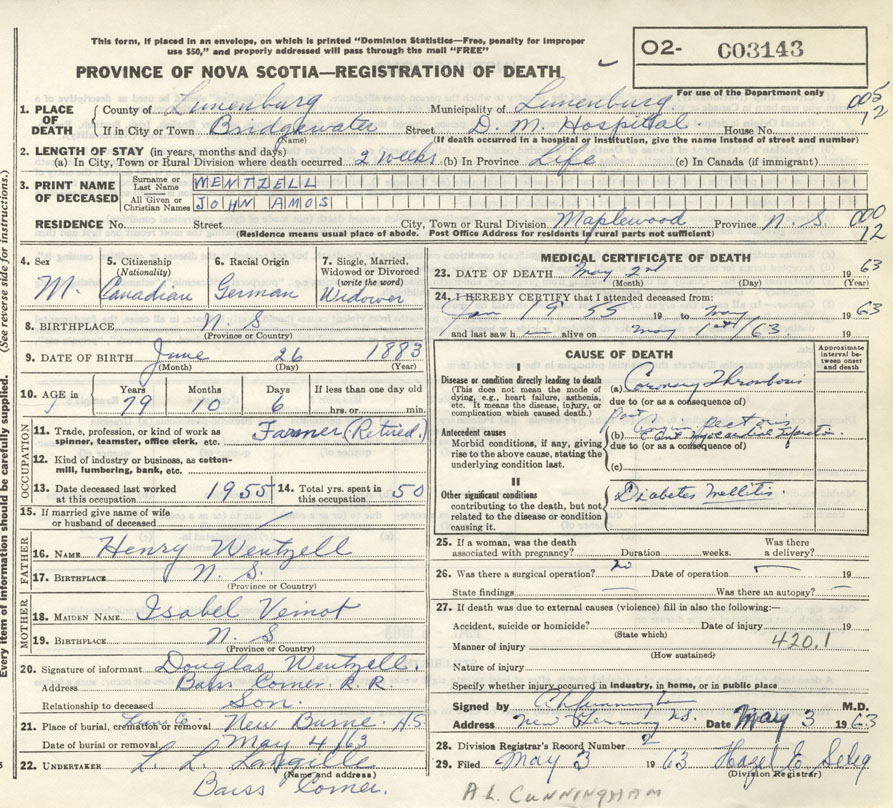 This form, if placed in an envelope, on which is printed "Dominion Statistics—Free, penalty for improper
use $50," and properly addressed will pass through the mail "FREE"
PROVINCE OF NOVA SCOTIA—REGISTRATION OF DEATH
O2- C03143
For use of the Department only
005
12
1. PLACE OF DEATH
County of Lunenburg Municipality of Lunenburg
If in City or Town Bridgewater Street D. M. Hospital House No.
(Name) (If death occurred in a hospital or institution, give the name instead of street and number)
2. LENGTH OF STAY (in years, months and days)
(a) In City, Town or Rural Division where death occurred 2 weeks (b) In Province Life (c) In Canada (if immigrant)
3. PRINT NAME OF DECEASED
Surname or Last Name WENTZELL
All Given or Christian Names JOHN AMOS
RESIDENCE No. Street City, Town or Rural Division Maplewood Province N. S.
(Residence means usual place of abode. Post Office Address for residents in rural parts not sufficient)
000
12
4. Sex M.
5. Citizenship (Nationality) Canadian
6. Racial Origin German
7. Single, Married, Widowed or Divorced (write the word) Widower
8. BIRTHPLACE N. S
(Province or Country)
9. DATE OF BIRTH June 26 1883
(Month) (Day) (Year)
10. AGE in Years 79 Months 10 Days 6 If less than one day old hrs. or min.
OCCUPATION
11. Trade, profession or kind of work as spinner, teamster, office clerk, etc. Farmer (Retired.)
12. Kind of industry or business, as cotton-mill, lumbering, bank, etc.
13. Date deceased last worked at this occupation 1955
14. Total yrs. spent in this occupation 50
15. If married give name of wife or husband of deceased
FATHER
16. NAME Henry Wentzell
17. BIRTHPLACE N. S.
(Province or Country)
MOTHER
18. MAIDEN NAME Isabel Veinot
19. BIRTHPLACE N. S
(Province or Country)
20. Signature of informant Douglas Wentzell.
Address Barss Corner. R.R
Relationship to deceased Son.
21. Place of burial, cremation or removal New Burne. N.S.
Date of burial or removal May 4/63
22. UNDERTAKER L. L. Langille
(Name and address)
Barss Corner.
MEDICAL CERTIFICATE OF DEATH
23. DATE OF DEATH May 2nd 1963
(Month) (Day) (Year)
24. I HEREBY CERTIFY that I attended deceased from:
Jan 1955 19 to May 1963
and last saw h alive on May 1st/63 19
CAUSE OF DEATH
Approximate interval between onset and death
I
Disease or condition directly leading to death
(This does not mean the mode of dying, e.g., heart failure, asthenia, etc. It means the disease, injury, or complication which caused death.)
(a) Coronary Thrombosis
due to (or as a consequence of)
Antecedent causes
Morbid conditions, if any, giving rise to the above cause, stating the underlying condition last.
(b)
due to (or as a consequence of)
(c)
II
Other significant conditions
contributing to the death, but not related to the disease or condition causing it.
Diabetes Mellitis.
25. If a woman, was the death associated with pregnancy? Duration weeks. Was there a delivery?
26. Was there a surgical operation? no Date of operation 19
State findings Was there an autopsy?
27. If death was due to external causes (violence) fill in also the following:—
Accident, suicide or homicide? Date of injury 19
(State which)
Manner of injury 420.1
(How sustained)
Nature of injury
Specify whether injury occurred in industry, in home, or in public place
Signed by M.D.
Address New Germany N.S. Date May 3 1963
28. Division Registrar's Record Number 2
29. Filed May 3 1963 Hazel E. Selig
(Division Registrar)
A. L. CUNNINGHAM
(See reverse side for instructions.)
Every item of information should be carefully supplied.